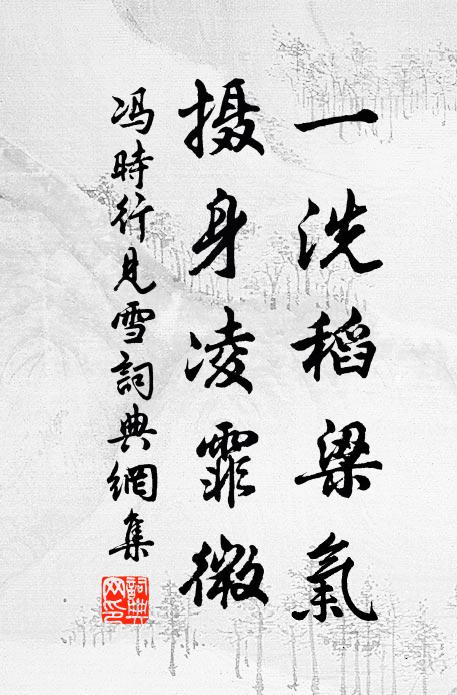 一洗稻粱氣
摄身凌霏微
冯時行見雪詞典網集
詞典網印